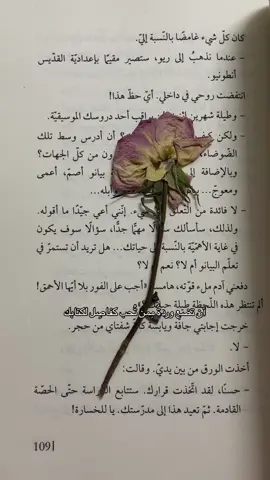 كان كلّ شيء غامضًا بالنّسبة إليّ.
- عندما نذهبُ إلى ريو، ستصير مقيمًا بإعداديّة القدّيس
أنطونيو.
انتفضت روحي في داخلي. أيّ حظّ هذا!
- وطيلة شهرين أراقب أحد دروسك الموسيقيّة.
- ولكن أن أدرس وسط تلك
الضّوضاء من كلّ الجهات؟
وبالإضافة إلى بيانو أصمّ، أعمى
ومعوجّ...
- لا فائدة من التّعلّق شيء. إنّني أعي جيّدًا ما أقوله.
ولذلك، سأسألك سؤالًا مهمًّا جدًّا، سؤالًا سوف يكون
في غاية الأهمّيّة بالنّسبة إلى حياتك... هل تريد أن تستمرّ في
تعلّم البيانو أم لا؟ نعم أم لا؟
دفعني آدم ملء قوّته، هامسًا: أجب على الفور بلا أيّها الأحمق!
ألم تنتظر هذه اللّحظة طيلة حياتك
أن تضع وردة ممن تحب كفاصل لكتابك
خرجت إجابتي جافّة ويابسة شفتاي من حجر.
- لا.
أخذت الورق من بين يديّ. وقالت:
- حسنًا، لقد اتّخذت قرارك. ستتابع الدراسة حتّى الحصّة
القادمة. ثمّ تعيد هذا إلى مدرّستك. يا للخسارة!
109